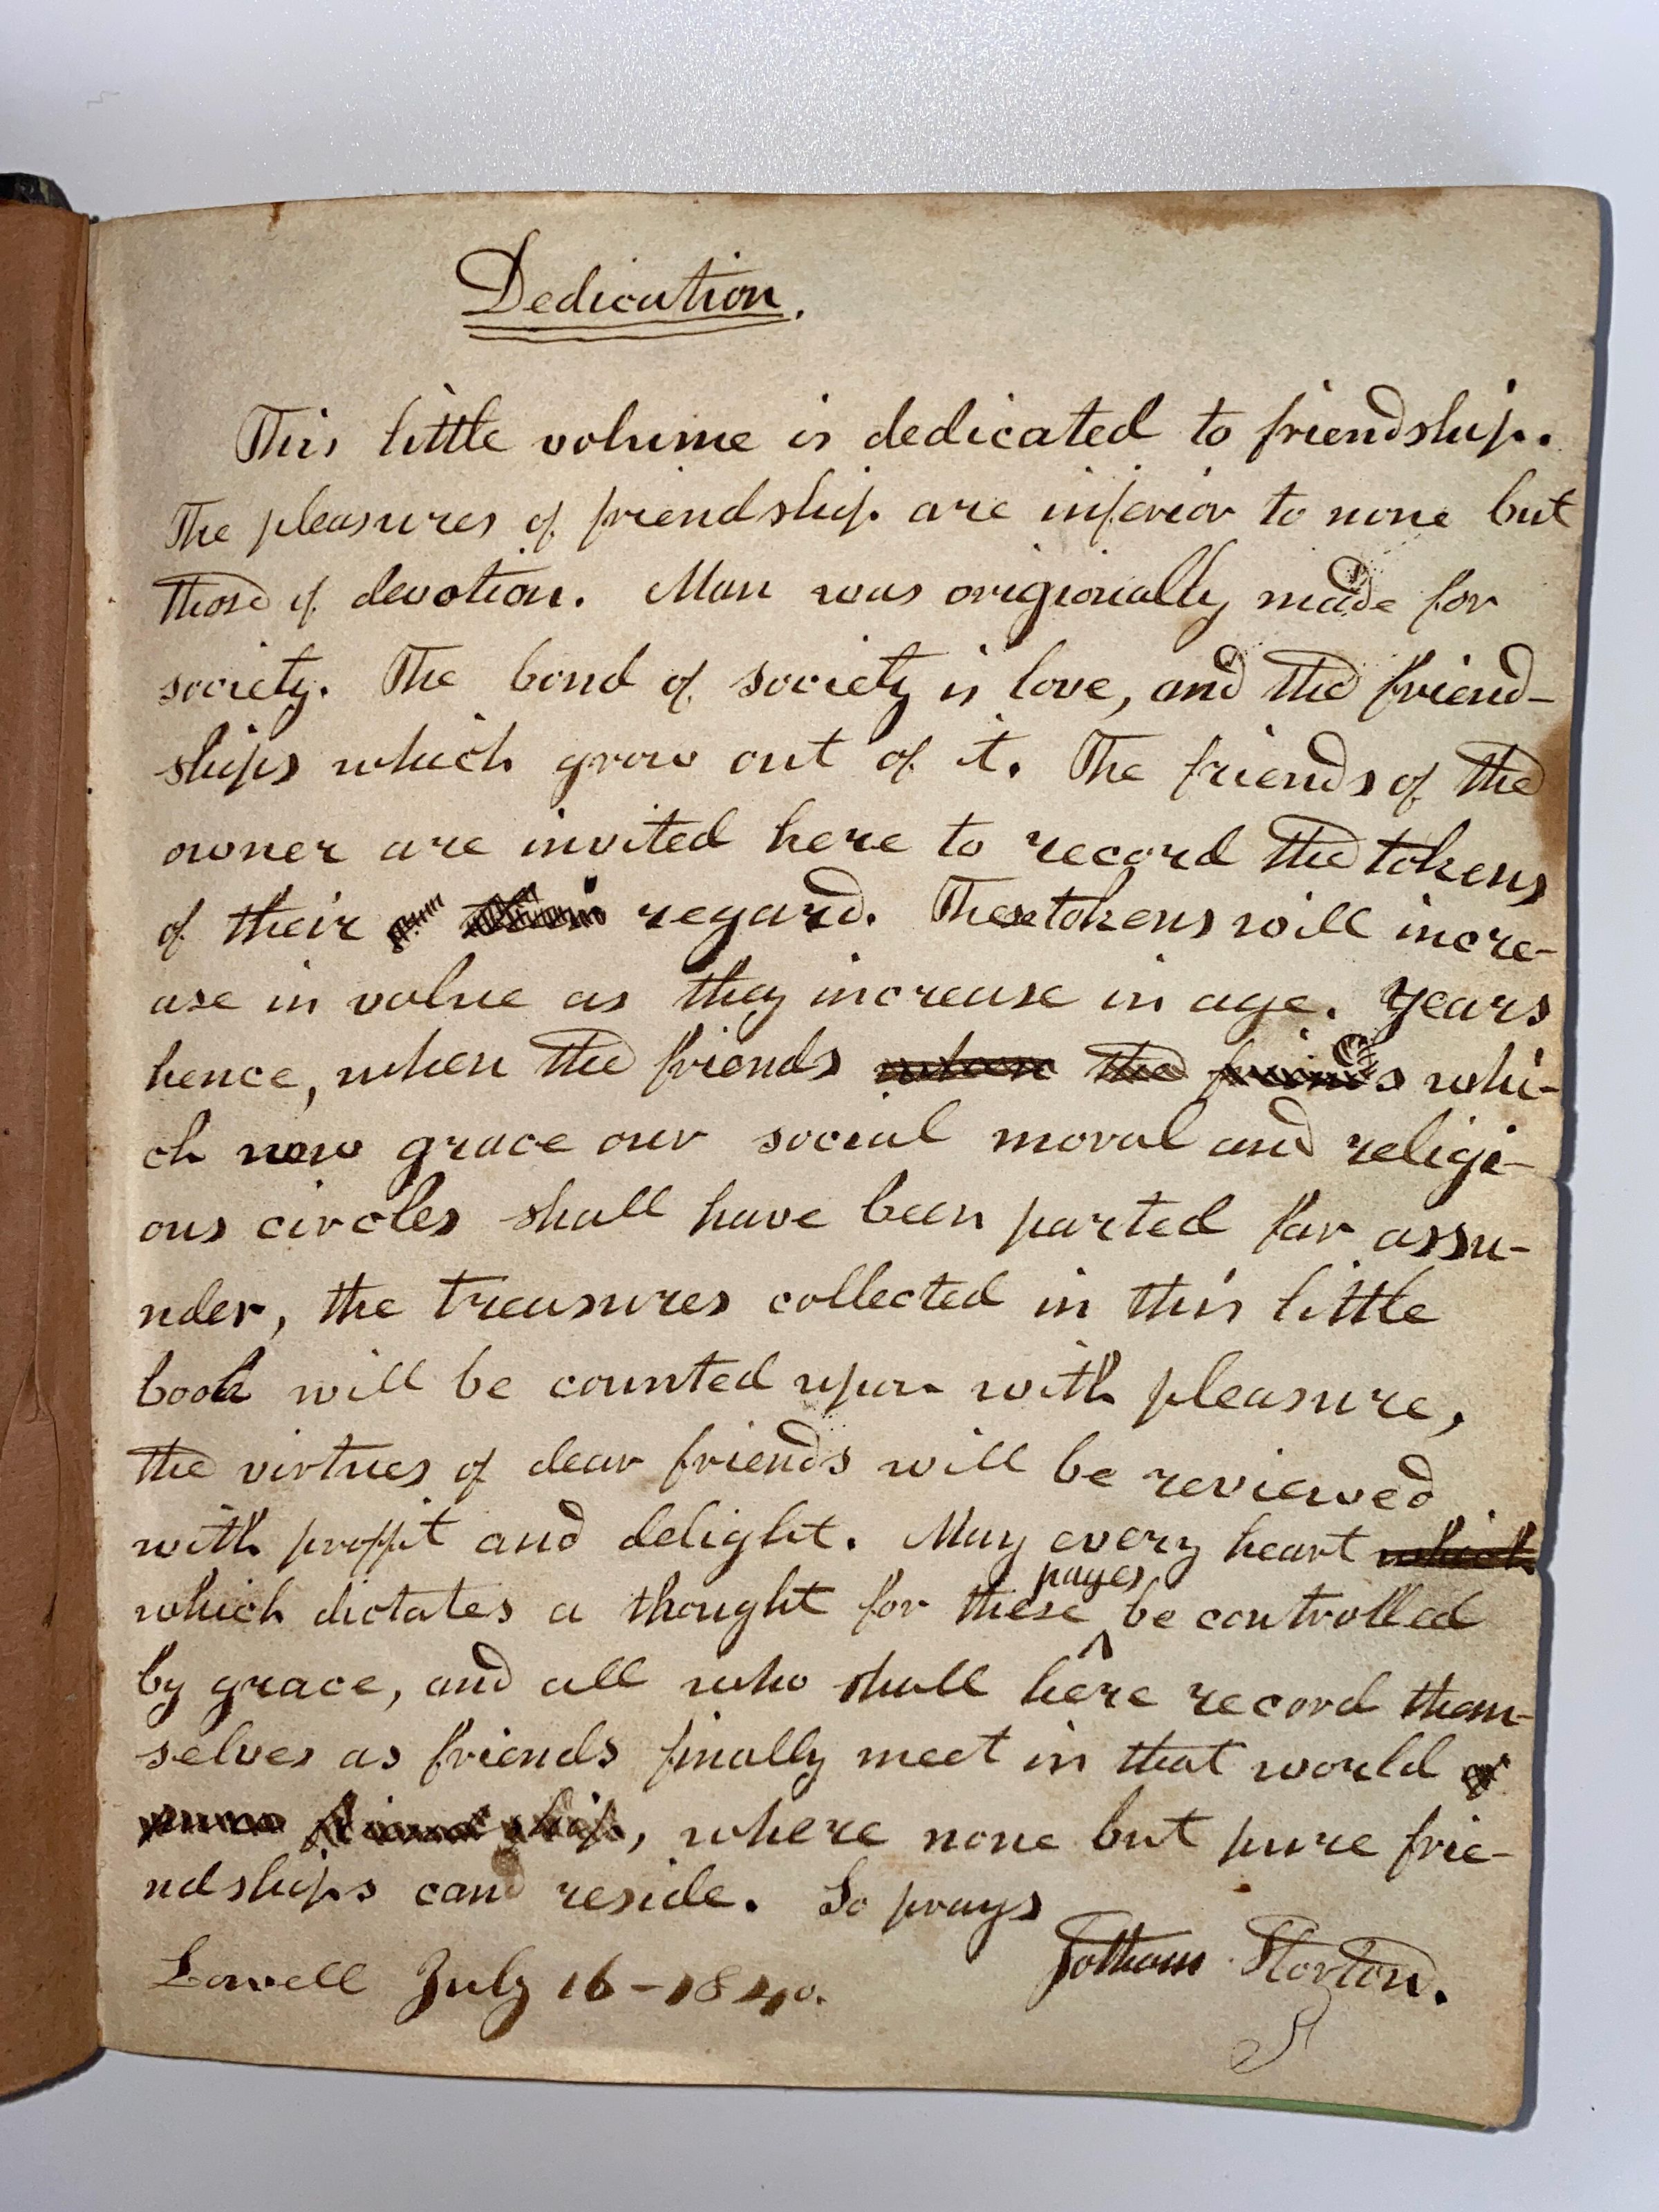 Dedication.
This little volume is dedicated to friendship.
The pleasures of friendship are inferior to none but
those of devotion. Man was origionally made for
society. The bond of society is love, and the friend-
ships which grow out of it. The friends of the
owner are invited here to record the tokens
of their regard. These tokens will incre-
ase in value as they increase in age. Years
hence, when the friends when the friends whi-
ch now grace our social moral and religi-
ous circles shall have been parted far assu-
nder, the treasures collected in this little
book will be counted upon with pleasure,
the virtues of dear friends will be reviewed
with proffit and delight. May every heart which
pages
which dictates a thought for these be controlled
by grace, and all who shall here record them-
selves as friends finally meet in that world of
friendship, where none but pure frie-
ndships can reside. So prays
Jotham Horton.
Lowell July 16-1840.